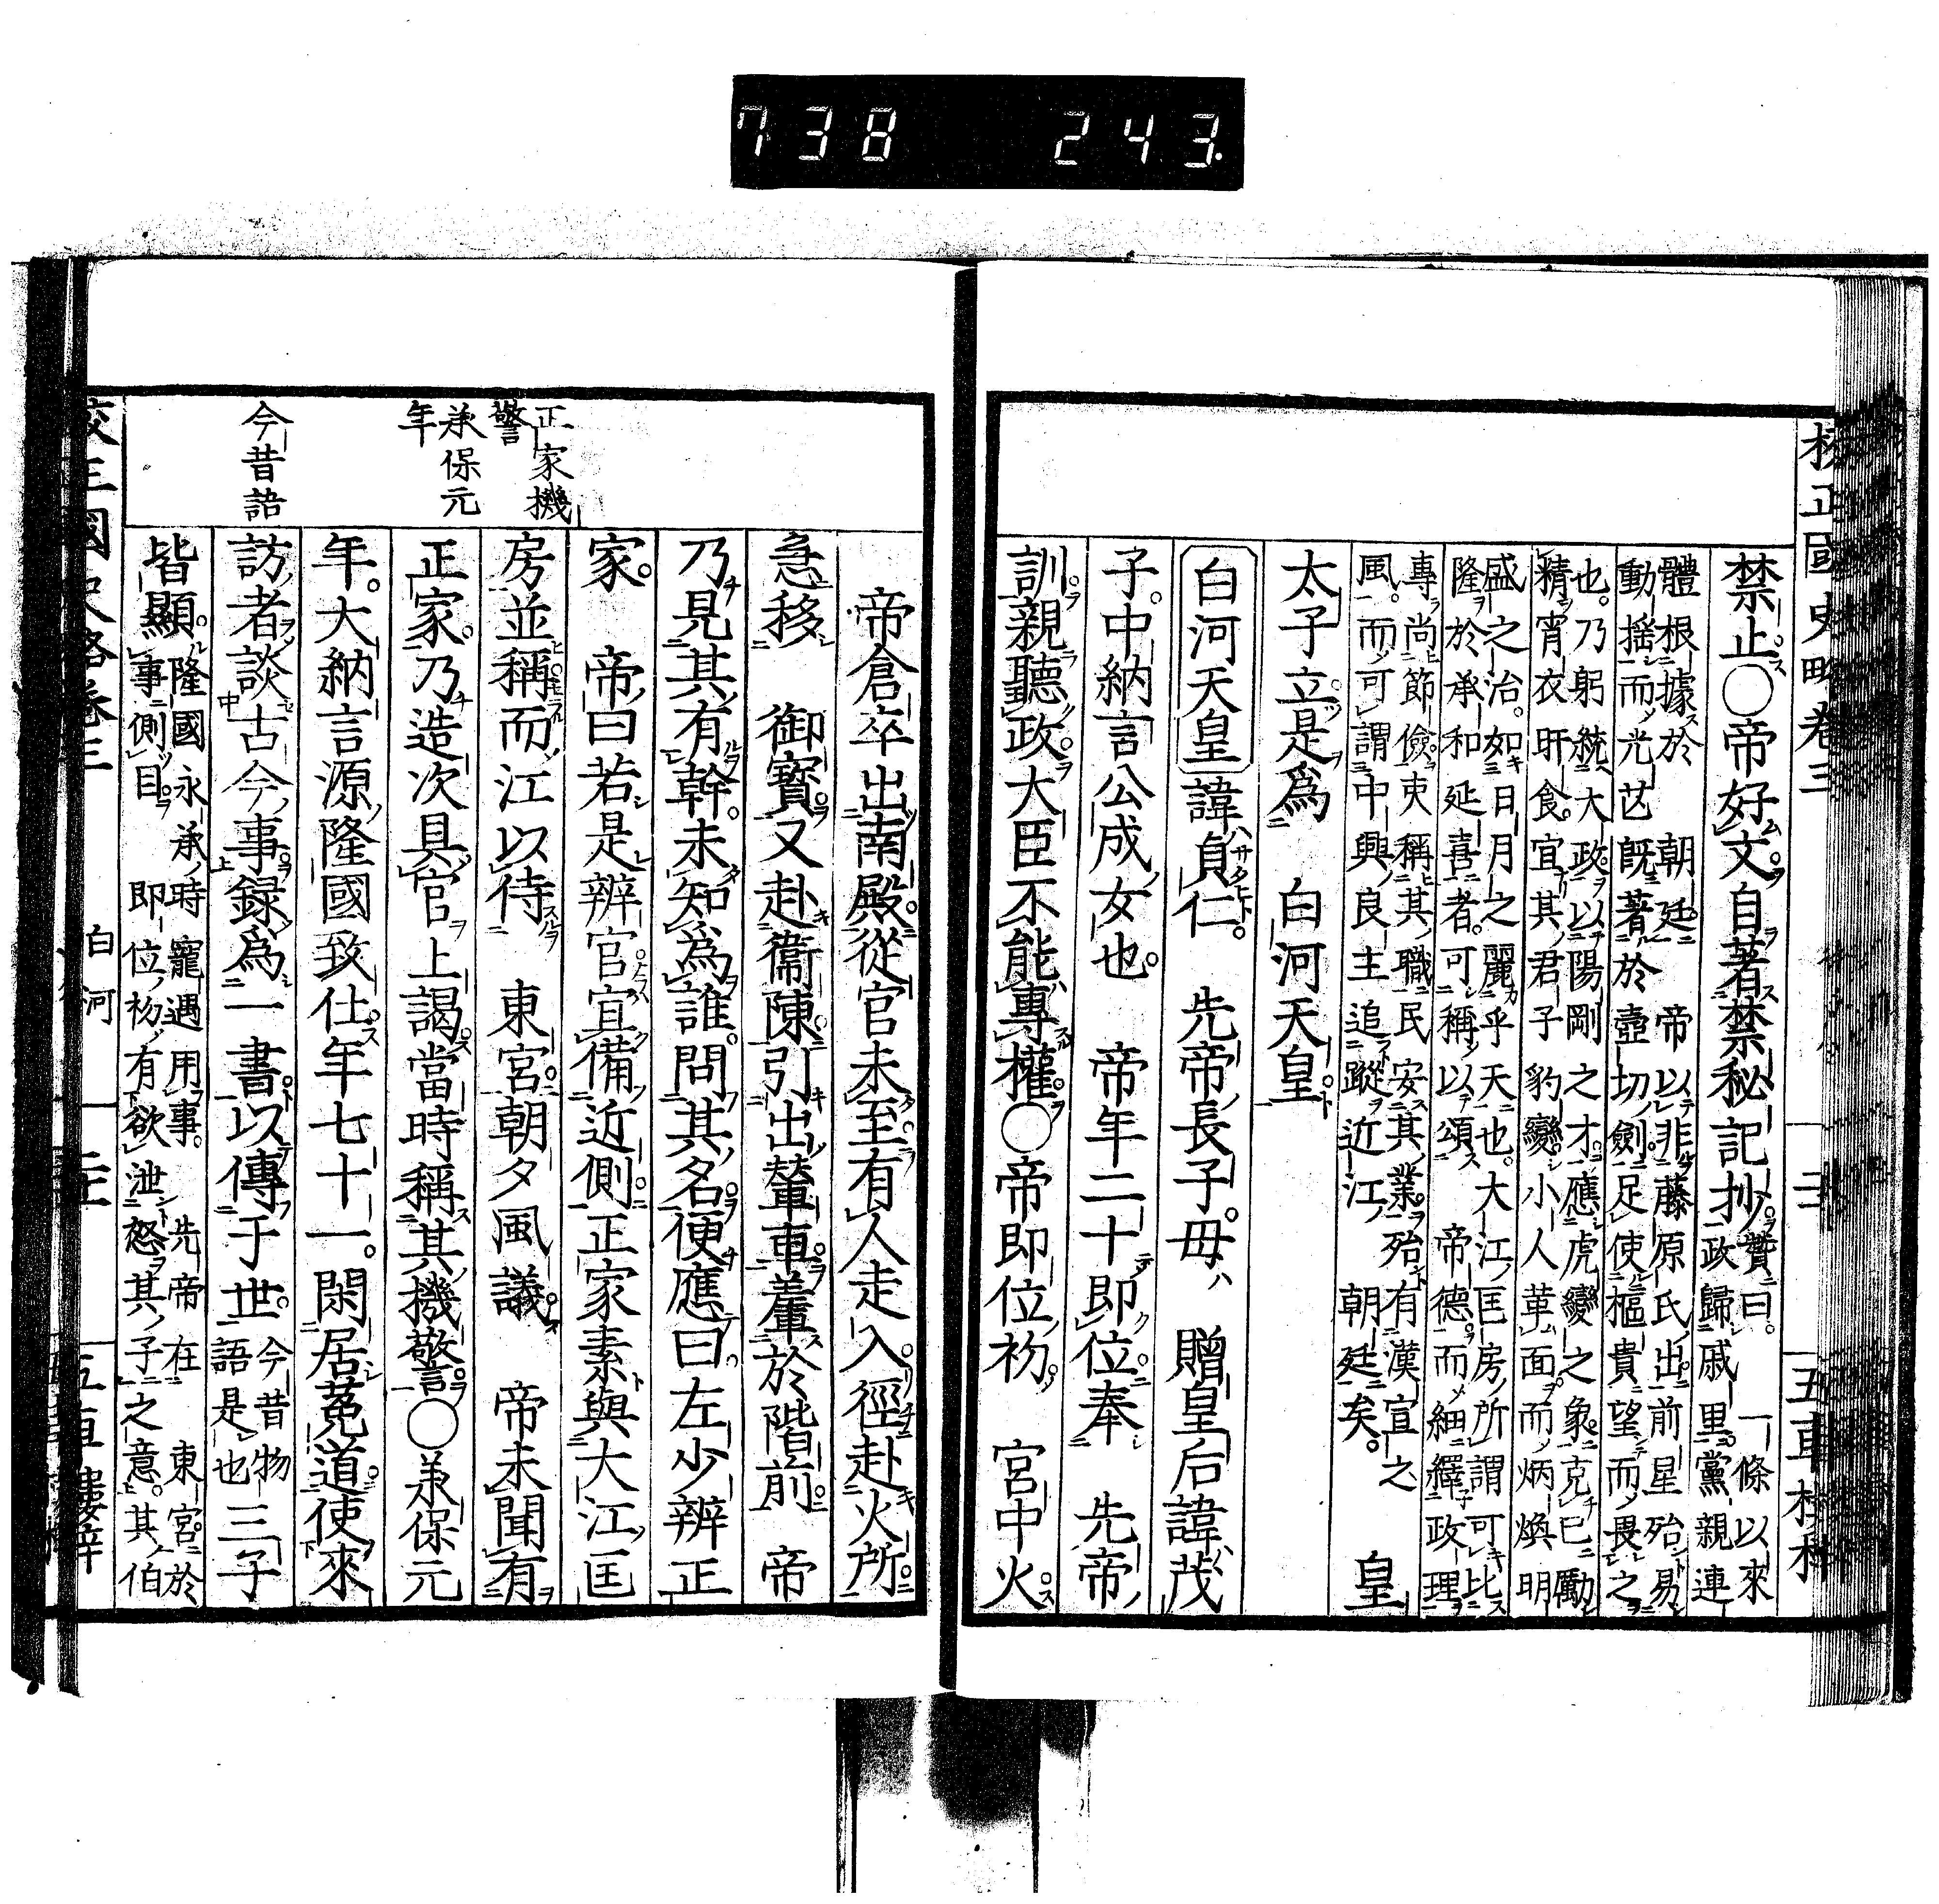 校正國史略卷三
禁止○帝好文自著禁秘記抄
贊曰。一條以來
政歸戚里黨親連
體根據於　朝廷　帝以非藤原氏出前星殆易
動搖而光芒既著於壺切劍足使樞貴望而畏之
也。乃躬統大政以陽剛之才應虎變之象克已勵
精宵衣旰食。宜其君子豹變小人革面而炳煥明
盛之治。如日月之麗乎天也。大江匡房所謂可比
隆於承和延喜者。可稱以頌　帝德而細繹政理
專尚節儉吏稱其職民安其業殆有漢宣之
風。而可謂中興良主追蹤近江　朝廷矣。
皇
太子立是爲　白河天皇
白河天皇　諱貞仁。　先帝長子。母　贈皇后諱茂
子。中納言公成女也。　帝年二十即位奉　先帝
訓親聽政大臣不能專權○帝即位初　宮中火
帝倉卒出南殿從官未至有人走入徑赴火所
急移　御寳又赴衞陳引出輦車輦於階前　帝
乃見其有幹未知爲誰問其名便應曰左少辨正
家。　帝曰若是辨官宜備近側正家素與大江匡
房並稱而江以待　東宮朝夕風議　帝未聞有
正家乃造次具官上謁當時稱其機警○承保元
年。大納言源隆國致仕年七十一。閑居菟道使來
訪者談古今事録爲一書以傳于世。
今昔物
語是也
三子
皆顯
隆國永承時寵遇用事。先帝在　東宮於
事側目　即位初有欲泄怒其子之意。其伯
正家機
警
承保元
年
今昔語
白河
738 243